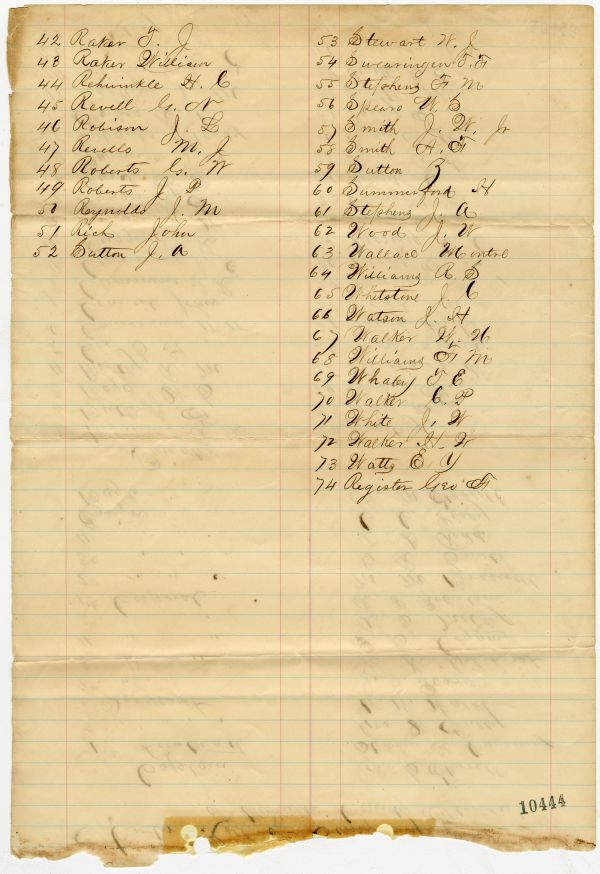 42 Raker T. J
43 Raker William
44 Rehwinkle H. C
45 Revell G. N
46 Robison J. L
47 Revells M. J
48 Roberts G. W
49 Roberts J P
50 Reynolds J. M
51 Rich John
52 Sutton J. A
53 Stewart W. J
54 Swearingen T. F
55 Stephens F M
56 Spears W. S
57 Smith J. W. Jr
58 Smith H. F
59 Sutton Z
60 Summerford H
61 Stephens J. A
62 Wood J. W
63 Wallace
64 Williams R. S
65 Whitstone J. C
66 Watson J. H
67 Walker W. H
68 Williams F M
69 Whaley T E
70 Walker C. P
71 White J. W
72 Walker H. W
73 Watts E. Y
74 Register Geo F
10444